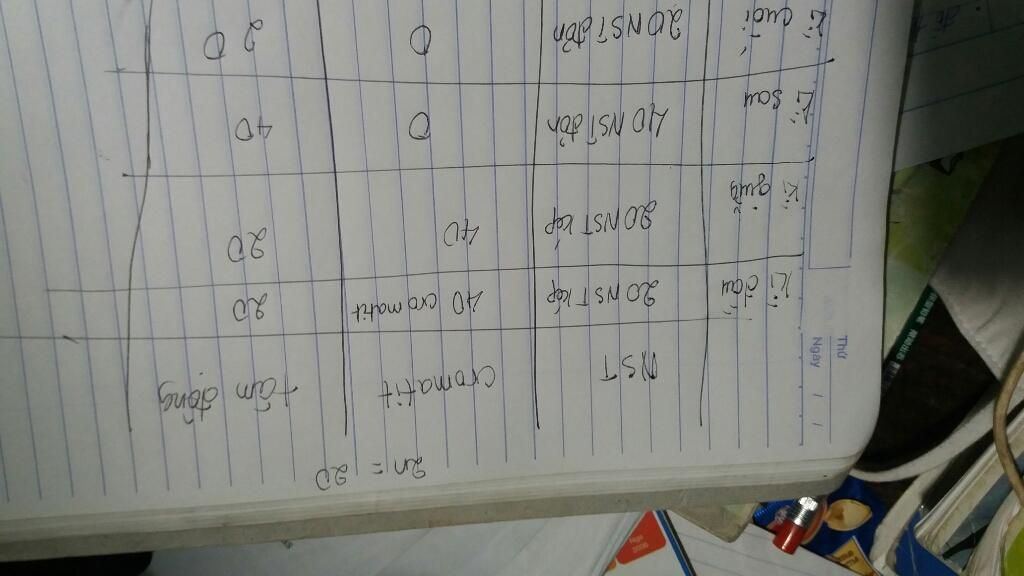 Thứ
Ngày / /
2n = 20
NST cromatit tâm động
kì đầu 20 NST kép 40 cromatit 20
kì giữa 20 NST kép 40 20
kì sau 40 NST đơn 0 40
kì cuối 20 NST đơn 0 20